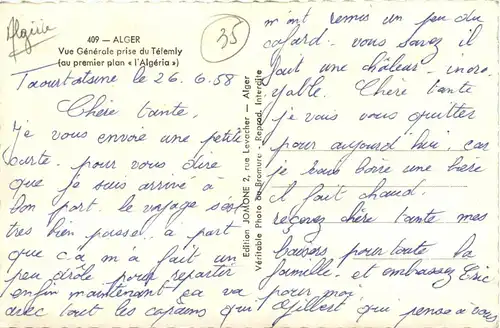 Algérie
35
409 — ALGER
Vue Générale prise du Télemly
(au premier plan « l'Algéria »)
Taourtatsine le 26.6.58
Chère tante,
Je vous envoie une petite
carte. pour vous dire
que je suis arrivé à
bon port le voyage s'est
très bien passer. a part
que ç'à m'a fait un
peu drôle. pour repartir
enfin maintenant ça va
avec tout les copains qui
Edition JOMONE 2, rue Levacher — Alger
Véritable Photo au Bromure - Reprod. Interdite
m'ont remis un peu du
cafard. vous savez il
fait une châleur - incro-
yable. Chère tante
je vais vous quitter
pour aujourd hui, car
je vais boire une bière
il fait chaud.
recevez chère tante mes
baisers pour toute la
famille. et embrassez Eric
pour moi.
Gilbert qui pense à vous